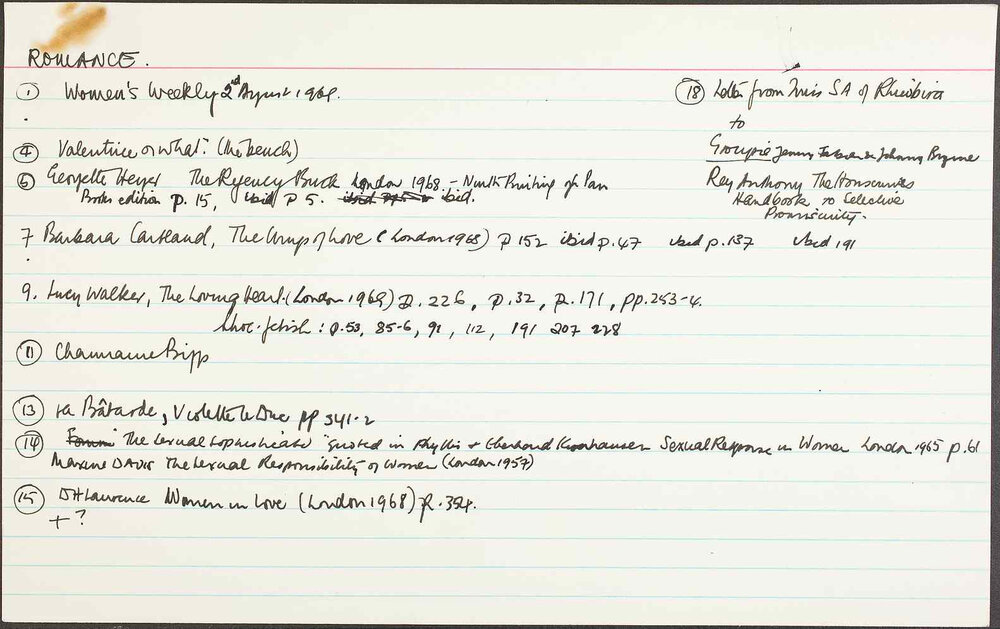 ROMANCE.
① Women's Weekly 2nd August 1969.
④ Valentine or what? (the bench)
⑤ Georgette Heyer The Regency Buck London 1968. - Ninth Printing of Pan
Books edition p. 15, ibid p 5. ibid.
7 Barbara Cartland, The Wings of Love (London 1968) p 152 ibid p.47 ibid p.137 ibid 191
9. Lucy Walker, The Loving Heart. (London 1969) p. 226, p.32, p.171, pp.253-4.
Shoe-fetish: p.53, 85-6, 91, 112, 191 207 228
⑪ Charmaine Bipps
⑬ La Bâtarde, Violette le Duc pp 341-2
⑭ "The Sexual Sophisticate" quoted in Phyllis + Eberhard Kronhausen Sexual Response in Women London 1965 p.61
Maxine DAVIS The Sexual Responsibility of Women (London 1957)
⑮ DH Lawrence Women in Love (London 1968) p. 354.
+ ?
⑱ Letter from Miss SA of
to
Groupie Jenny Fabian & Johnny Byrne
Rey Anthony The Housewives
Handbook to Selective
Promiscuity.